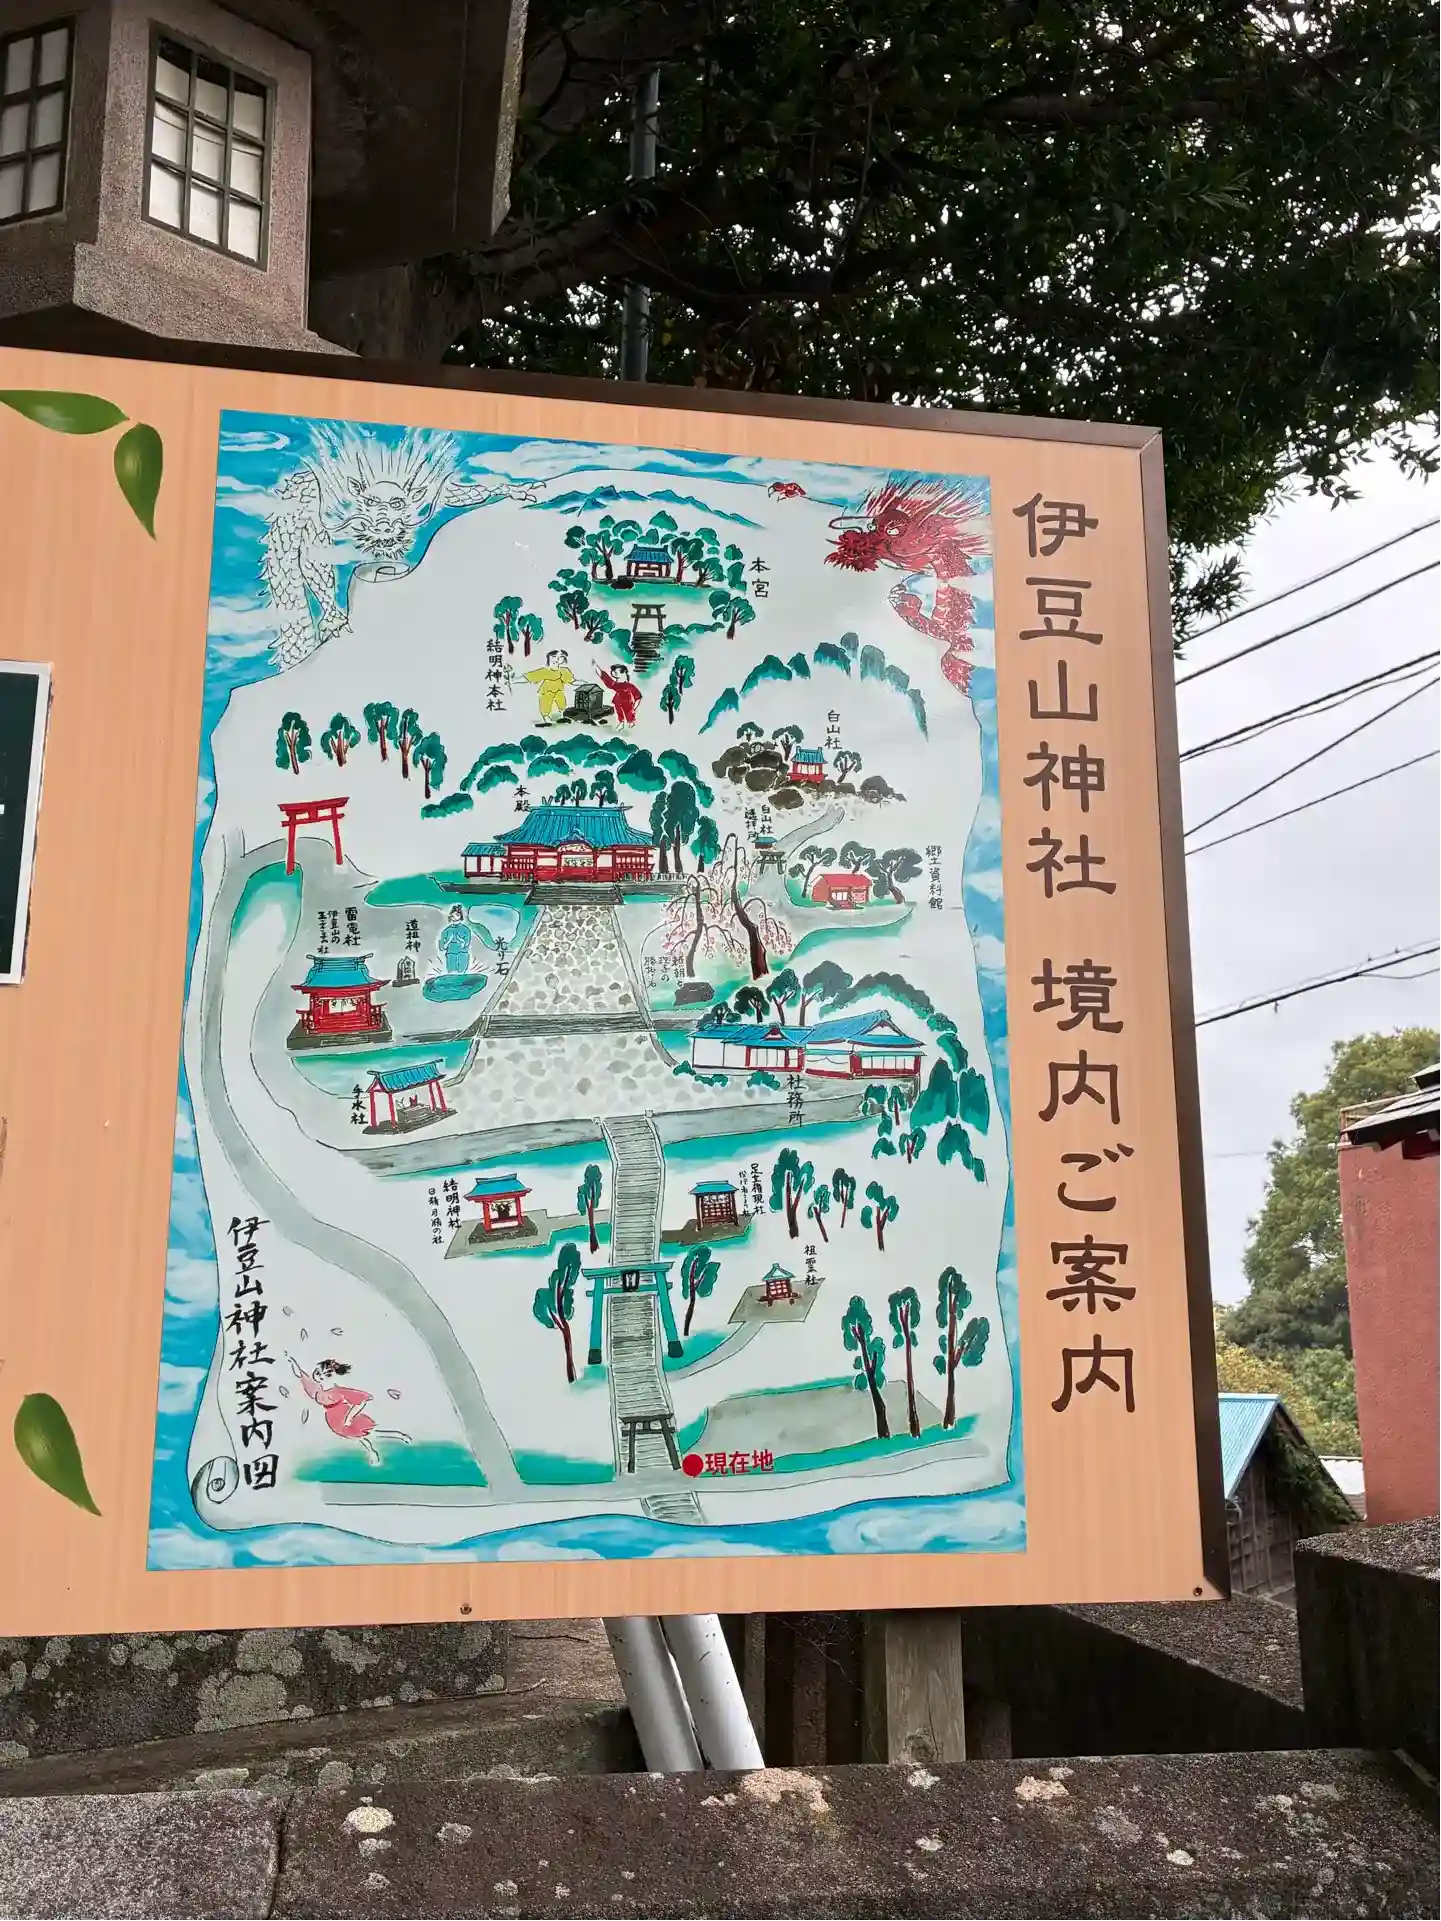 伊豆山神社 境内ご案内
本宮
結明神本社
白山社
本殿
白山社
遙拝所
郷土資料館
雷電社
伊豆山の
道祖神
光り石
頼朝と
政子の
腰掛石
手水社
社務所
結明神社
足立権現社
祖霊社
伊豆山神社案内図
現在地